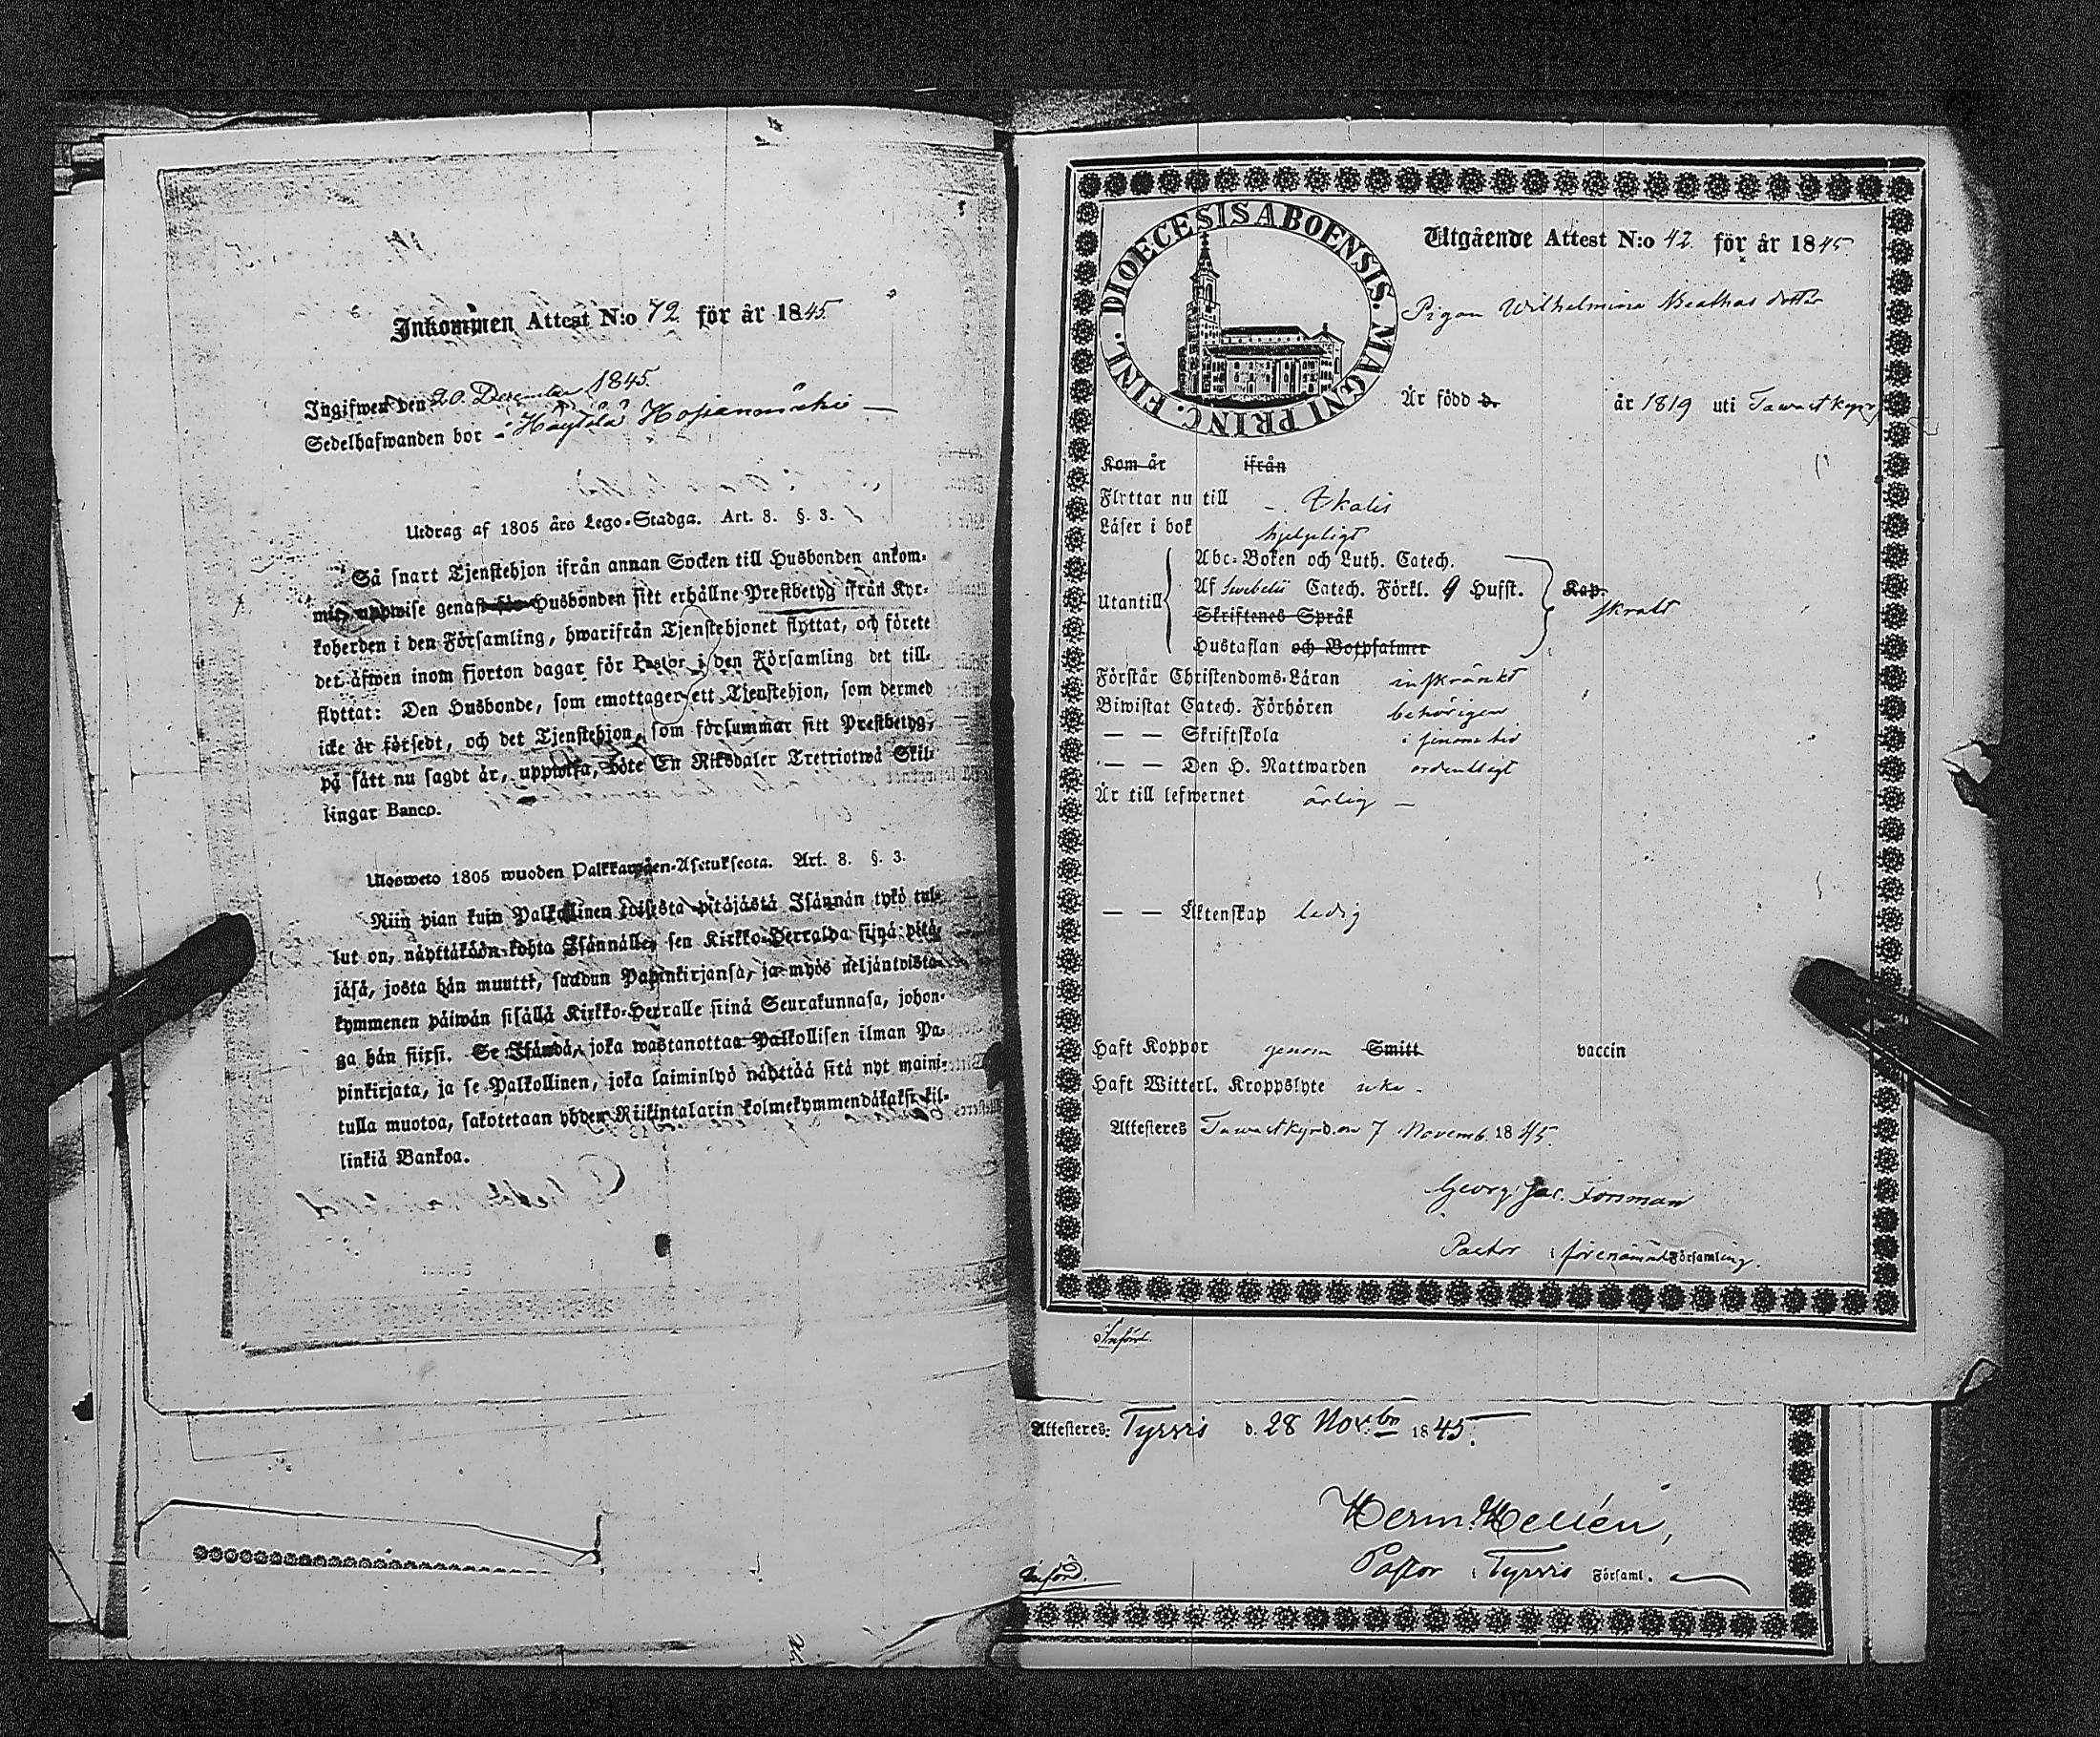 Inkommen Attest N:o 72. för år 1845
Ingifwen den 20. December 1845.
Sedelhafwanden bor i Höytölä
Utdrag af 1805 års Lego-Stadga. Art. 8. §. 3.
Så snart Tjenstehjon ifrån annan Socken till Husbonden ankom-
mit, uppwise genast för Husbonden sitt erhållne Prestbetyg ifrån Kyr-
koherden i den Församling, hwarifrån Tjenstehjonet flyttat, och förete
det äfwen inom fjorton dagar för Pastor i den Församling det till-
flyttat: Den Husbonde, som emottager ett Tjenstehjon, som dermed
icke är försedt, och det Tjenstehjon, som försummar sitt Prestbetyg,
på sätt nu sagdt är, uppwisa, böte En Riksdaler Trettiotwå Skil-
lingar Banco.
Ulosweto 1805 wuoden Palkkawäen-Asetuksesta. Art. 8. §. 3.
Niin pian kuin Palkollinen toisesta pitäjästä Isännän tykö tul-
lut on, näyttäköön kohta Isännälle, sen Kirkko-Herralda siinä pitä-
jäsä, josta hän muutti, saadun Papinkirjansa, ja myös neljäntoista-
kymmenen päiwän sisällä Kirkko-Herralle siinä Seurakunnasa, johon-
ga hän siirsi. Se Isändä, joka wastanottaa Palkollisen ilman Pa-
pinkirjata, ja se Palkollinen, joka laiminlyö näyttää sitä nyt maini-
tulla muotoa, sakotetaan yhden Riikintalarin kolmekymmendäkaksi kil-
linkiä Bankoa.
DIOECESIS ABOENSIS. MAGNI PRINC. FINL.
Utgående Attest N:o 42 för år 1845
Pigan Wilhelmina Beathas dotter
Är född d. år 1819 uti Tawastkyro
Kom år ifrån
Flyttar nu till Ikalis
Läser i bok hjelpeligt
Utantill
Abc-Boken och Luth. Catech.
Af Swebelii Catech. Förkl. 9 Hufst.
Skriftenes Språk
Hustaflan och Botpsalmer
Kap.
Förstår Christendoms-Läran inskränkt
Biwistat Catech. Förhören behörigen
— — Skriftskola i sinom tid
— — Den H. Nattwarden ordentligt
Är till lefwernet ärlig —
— — Äktenskap ledig
Haft Koppor genom Smitt vaccin
Haft Witterl. Kroppslyte icke.
Attesteres Tawastkyro den 7 Novemb. 1845.
Georg Jac. Forsman
Pastor i förenämnd Församling.
Införd.
Attesteres: Tyrvis d. 28 Nov:bn 1845.
Herm. Hellén,
Pastor i Tyrvis Församl.
Införd.